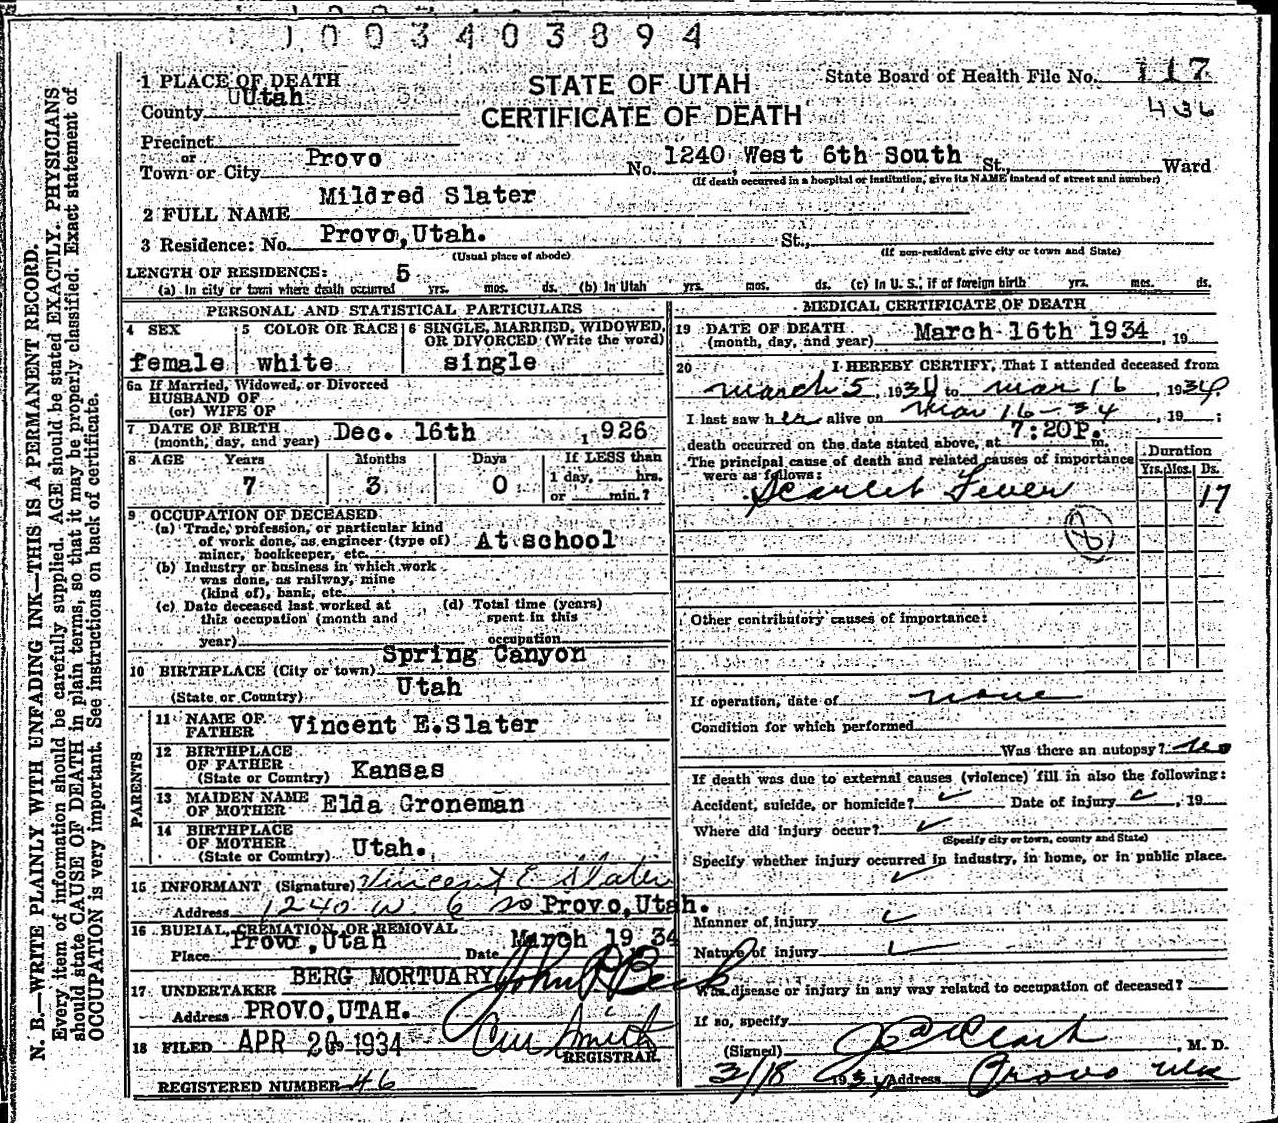 1003403894
1 PLACE OF DEATH
STATE OF UTAH
State Board of Health File No. 117
County UUtah
CERTIFICATE OF DEATH
436
Precinct
or
Town or City Provo No. 1240 West 6th South St., Ward
(If death occurred in a hospital or institution, give its NAME instead of street and number)
2 FULL NAME Mildred Slater
3 Residence: No. Provo,Utah. St.,
(Usual place of abode) (If non-resident give city or town and State)
LENGTH OF RESIDENCE:
(a) In city or town where death occurred 5 yrs. mos. ds. (b) In Utah yrs. mos. ds. (c) In U. S., if of foreign birth yrs. mos. ds.
PERSONAL AND STATISTICAL PARTICULARS
4 SEX 5 COLOR OR RACE 6 SINGLE, MARRIED, WIDOWED, OR DIVORCED (Write the word)
female white single
6a If Married, Widowed, or Divorced
HUSBAND OF
(or) WIFE OF
7 DATE OF BIRTH
(month, day, and year) Dec. 16th 1926
8 AGE Years Months Days If LESS than
7 3 0 1 day, hrs.
or min.?
9 OCCUPATION OF DECEASED
(a) Trade, profession, or particular kind
of work done, as engineer (type of)
miner, bookkeeper, etc. At school
(b) Industry or business in which work
was done, as railway, mine
(kind of), bank, etc.
(c) Date deceased last worked at
this occupation (month and
year)
(d) Total time (years)
spent in this
occupation
10 BIRTHPLACE (City or town) Spring Canyon
(State or Country) Utah
PARENTS
11 NAME OF
FATHER Vincent E.Slater
12 BIRTHPLACE
OF FATHER
(State or Country) Kansas
13 MAIDEN NAME
OF MOTHER Elda Groneman
14 BIRTHPLACE
OF MOTHER
(State or Country) Utah.
15 INFORMANT (Signature) Vincent E Slater
Address 1240 W. 6 So Provo,Utah.
16 BURIAL, CREMATION, OR REMOVAL
Place Provo ,Utah Date March 19 34
17 UNDERTAKER BERG MORTUARY
Address PROVO,UTAH.
18 FILED APR 20 1934
REGISTRAR.
REGISTERED NUMBER 46
MEDICAL CERTIFICATE OF DEATH
19 DATE OF DEATH
(month, day, and year) March 16th 1934 , 19
20 I HEREBY CERTIFY, That I attended deceased from
March 5, 1934 to Mar 16, 1934.
I last saw her alive on Mar 16-34, 19 ;
death occurred on the date stated above, at 7:20P. m.
The principal cause of death and related causes of importance
were as follows:
Duration
Yrs. Mos. Ds.
Scarlet Fever 17
8
Other contributory causes of importance:
If operation, date of none
Condition for which performed
Was there an autopsy? no
If death was due to external causes (violence) fill in also the following:
Accident, suicide, or homicide? Date of injury , 19
Where did injury occur?
(Specify city or town, county and State)
Specify whether injury occurred in industry, in home, or in public place.
Manner of injury
Nature of injury
Was disease or injury in any way related to occupation of deceased?
If so, specify
(Signed) , M. D.
3/18 1934 Address Provo Utah
N. B.—WRITE PLAINLY WITH UNFADING INK—THIS IS A PERMANENT RECORD.
Every item of information should be carefully supplied. AGE should be stated EXACTLY. PHYSICIANS
should state CAUSE OF DEATH in plain terms, so that it may be properly classified. Exact statement of
OCCUPATION is very important. See instructions on back of certificate.